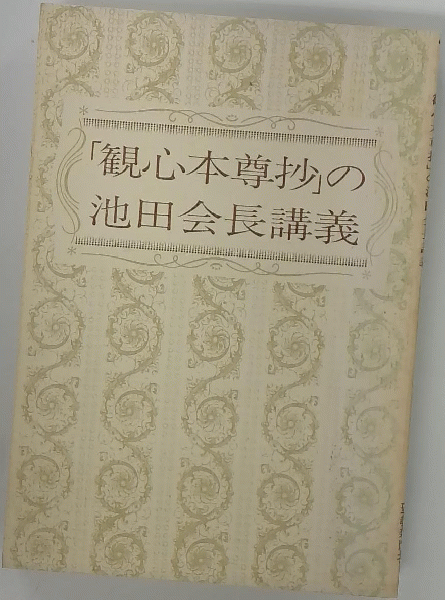 「観心本尊抄」の
池田会長講義